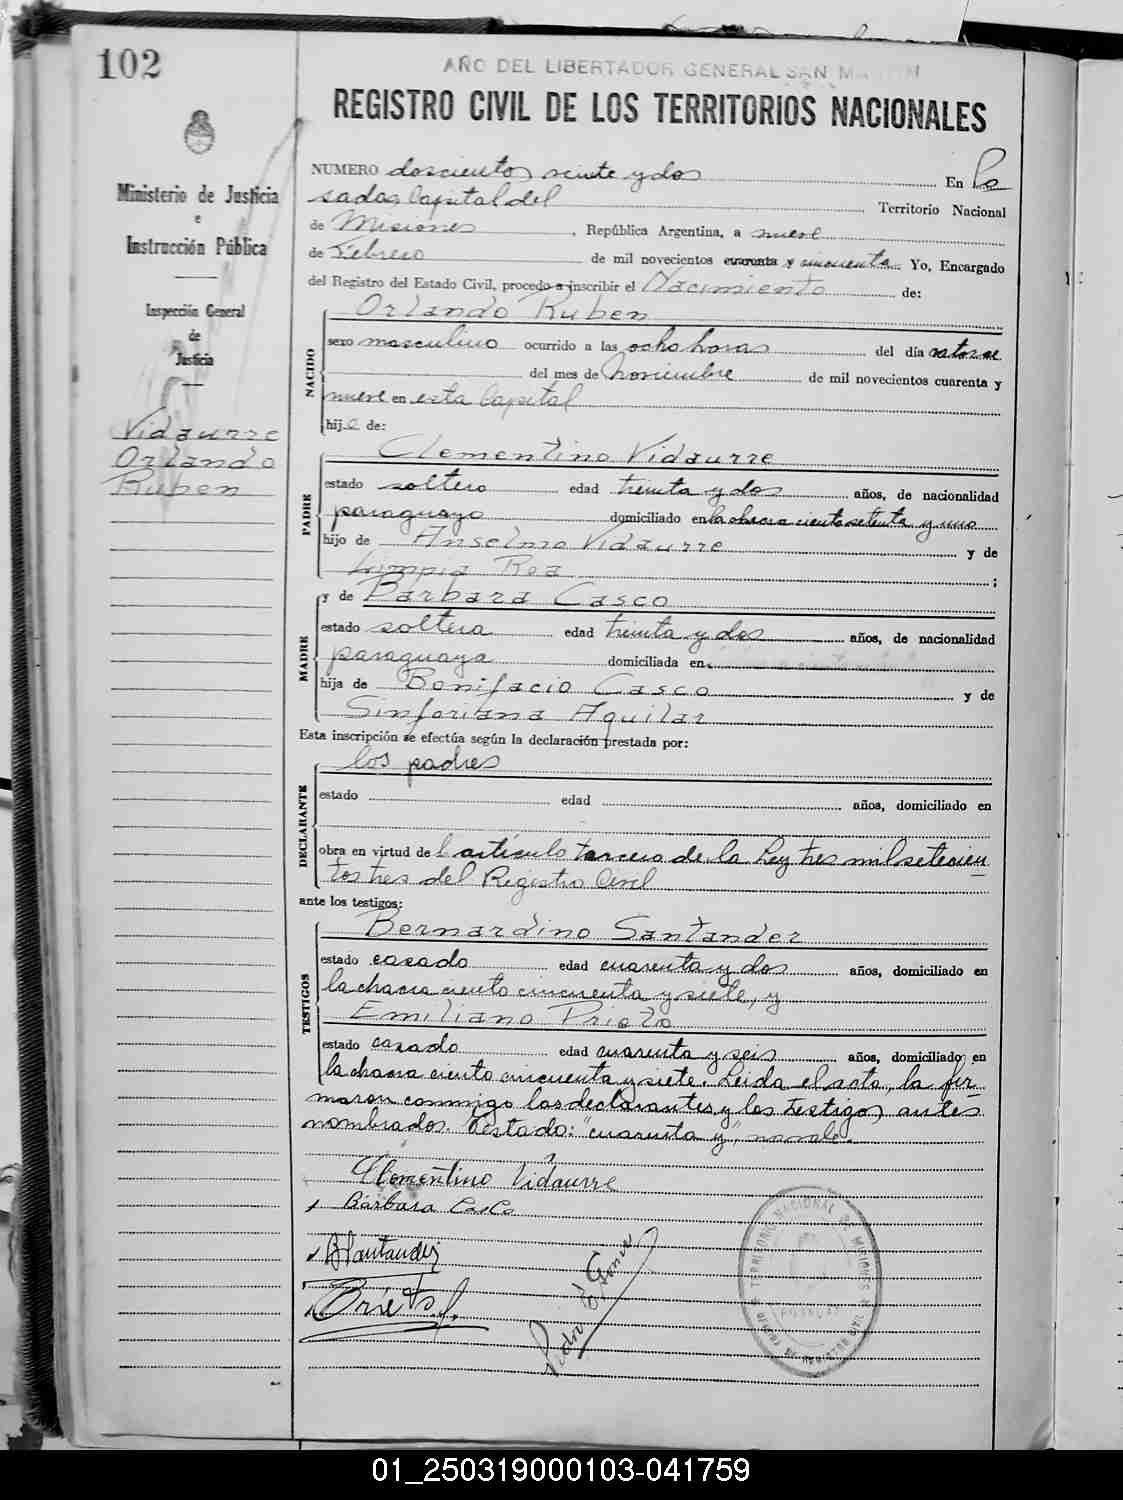 102
AÑO DEL LIBERTADOR GENERAL SAN MARTIN
REGISTRO CIVIL DE LOS TERRITORIOS NACIONALES
Ministerio de Justicia
e
Instrucción Pública
Inspección General
de
Justicia
Vidaurre
Orlando
Ruben
NUMERO doscientos veinte y dos En Po
sadas, Capital del Territorio Nacional
de Misiones, República Argentina, a nueve
de Febrero de mil novecientos cuarenta y cincuenta Yo, Encargado
del Registro del Estado Civil, procedo a inscribir el Nacimiento de:
NACIDO
Orlando Ruben
sexo masculino ocurrido a las ocho horas del día catorce
del mes de Noviembre de mil novecientos cuarenta y
nueve en esta Capital
hijo de:
PADRE
Clementino Vidaurre
estado soltero edad treinta y dos años, de nacionalidad
paraguayo domiciliado en la chacra ciento setenta y uno
hijo de Anselmo Vidaurre y de
Limpia Roa ;
MADRE
y de Barbara Casco
estado soltera edad treinta y dos años, de nacionalidad
paraguaya domiciliada en
hija de Bonifacio Casco y de
Sinforiana Aquilar
Esta inscripción se efectúa según la declaración prestada por:
DECLARANTE
los padres
estado edad años, domiciliado en
obra en virtud de l artículo tercero de la Ley tres mil setecien
tos tres del Registro Civil
ante los testigos:
TESTIGOS
Bernardino Santander
estado casado edad cuarenta y dos años, domiciliado en
la chacra ciento cincuenta y siete, y
Emiliano Prieto
estado casado edad cuarenta y seis años, domiciliado en
la chacra ciento cincuenta y siete. Leida el acta, la fir
maron conmigo los declarantes y los testigos antes
nombrados. Testado: "cuarenta y", no vale.
Clementino Vidaurre
Bárbara Casco
B Santander
Prieto
TERRITORIO NACIONAL DE MISIONES
POSADAS
01_250319000103-041759